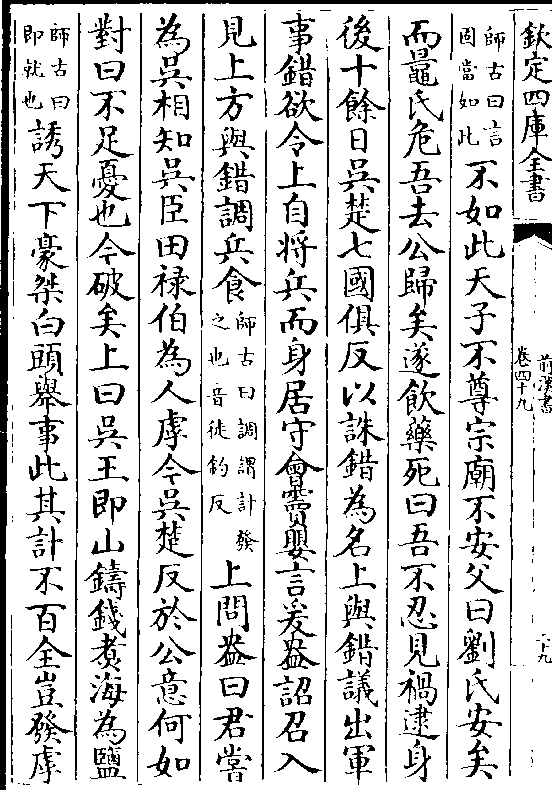 欽定四庫全書
前漢書
卷四十九
二十九
師古曰言
固當如此
不如此天子不尊宗廟不安父曰劉氏安矣
而鼂氏危吾去公歸矣遂飲藥死曰吾不忍見禍逮身
後十餘日吳楚七國俱反以誅錯為名上與錯議出軍
事錯欲令上自將兵而身居守會竇嬰言爰盎詔召入
見上方與錯調兵食
師古曰調謂計發
之也音徒釣反
上問盎曰君嘗
為吳相知吳臣田禄伯為人虖今吳楚反於公意何如
對曰不足憂也今破矣上曰吳王即山鑄錢煑海為鹽
師古曰
即就也
誘天下豪桀白頭舉事此其計不百全豈發虖